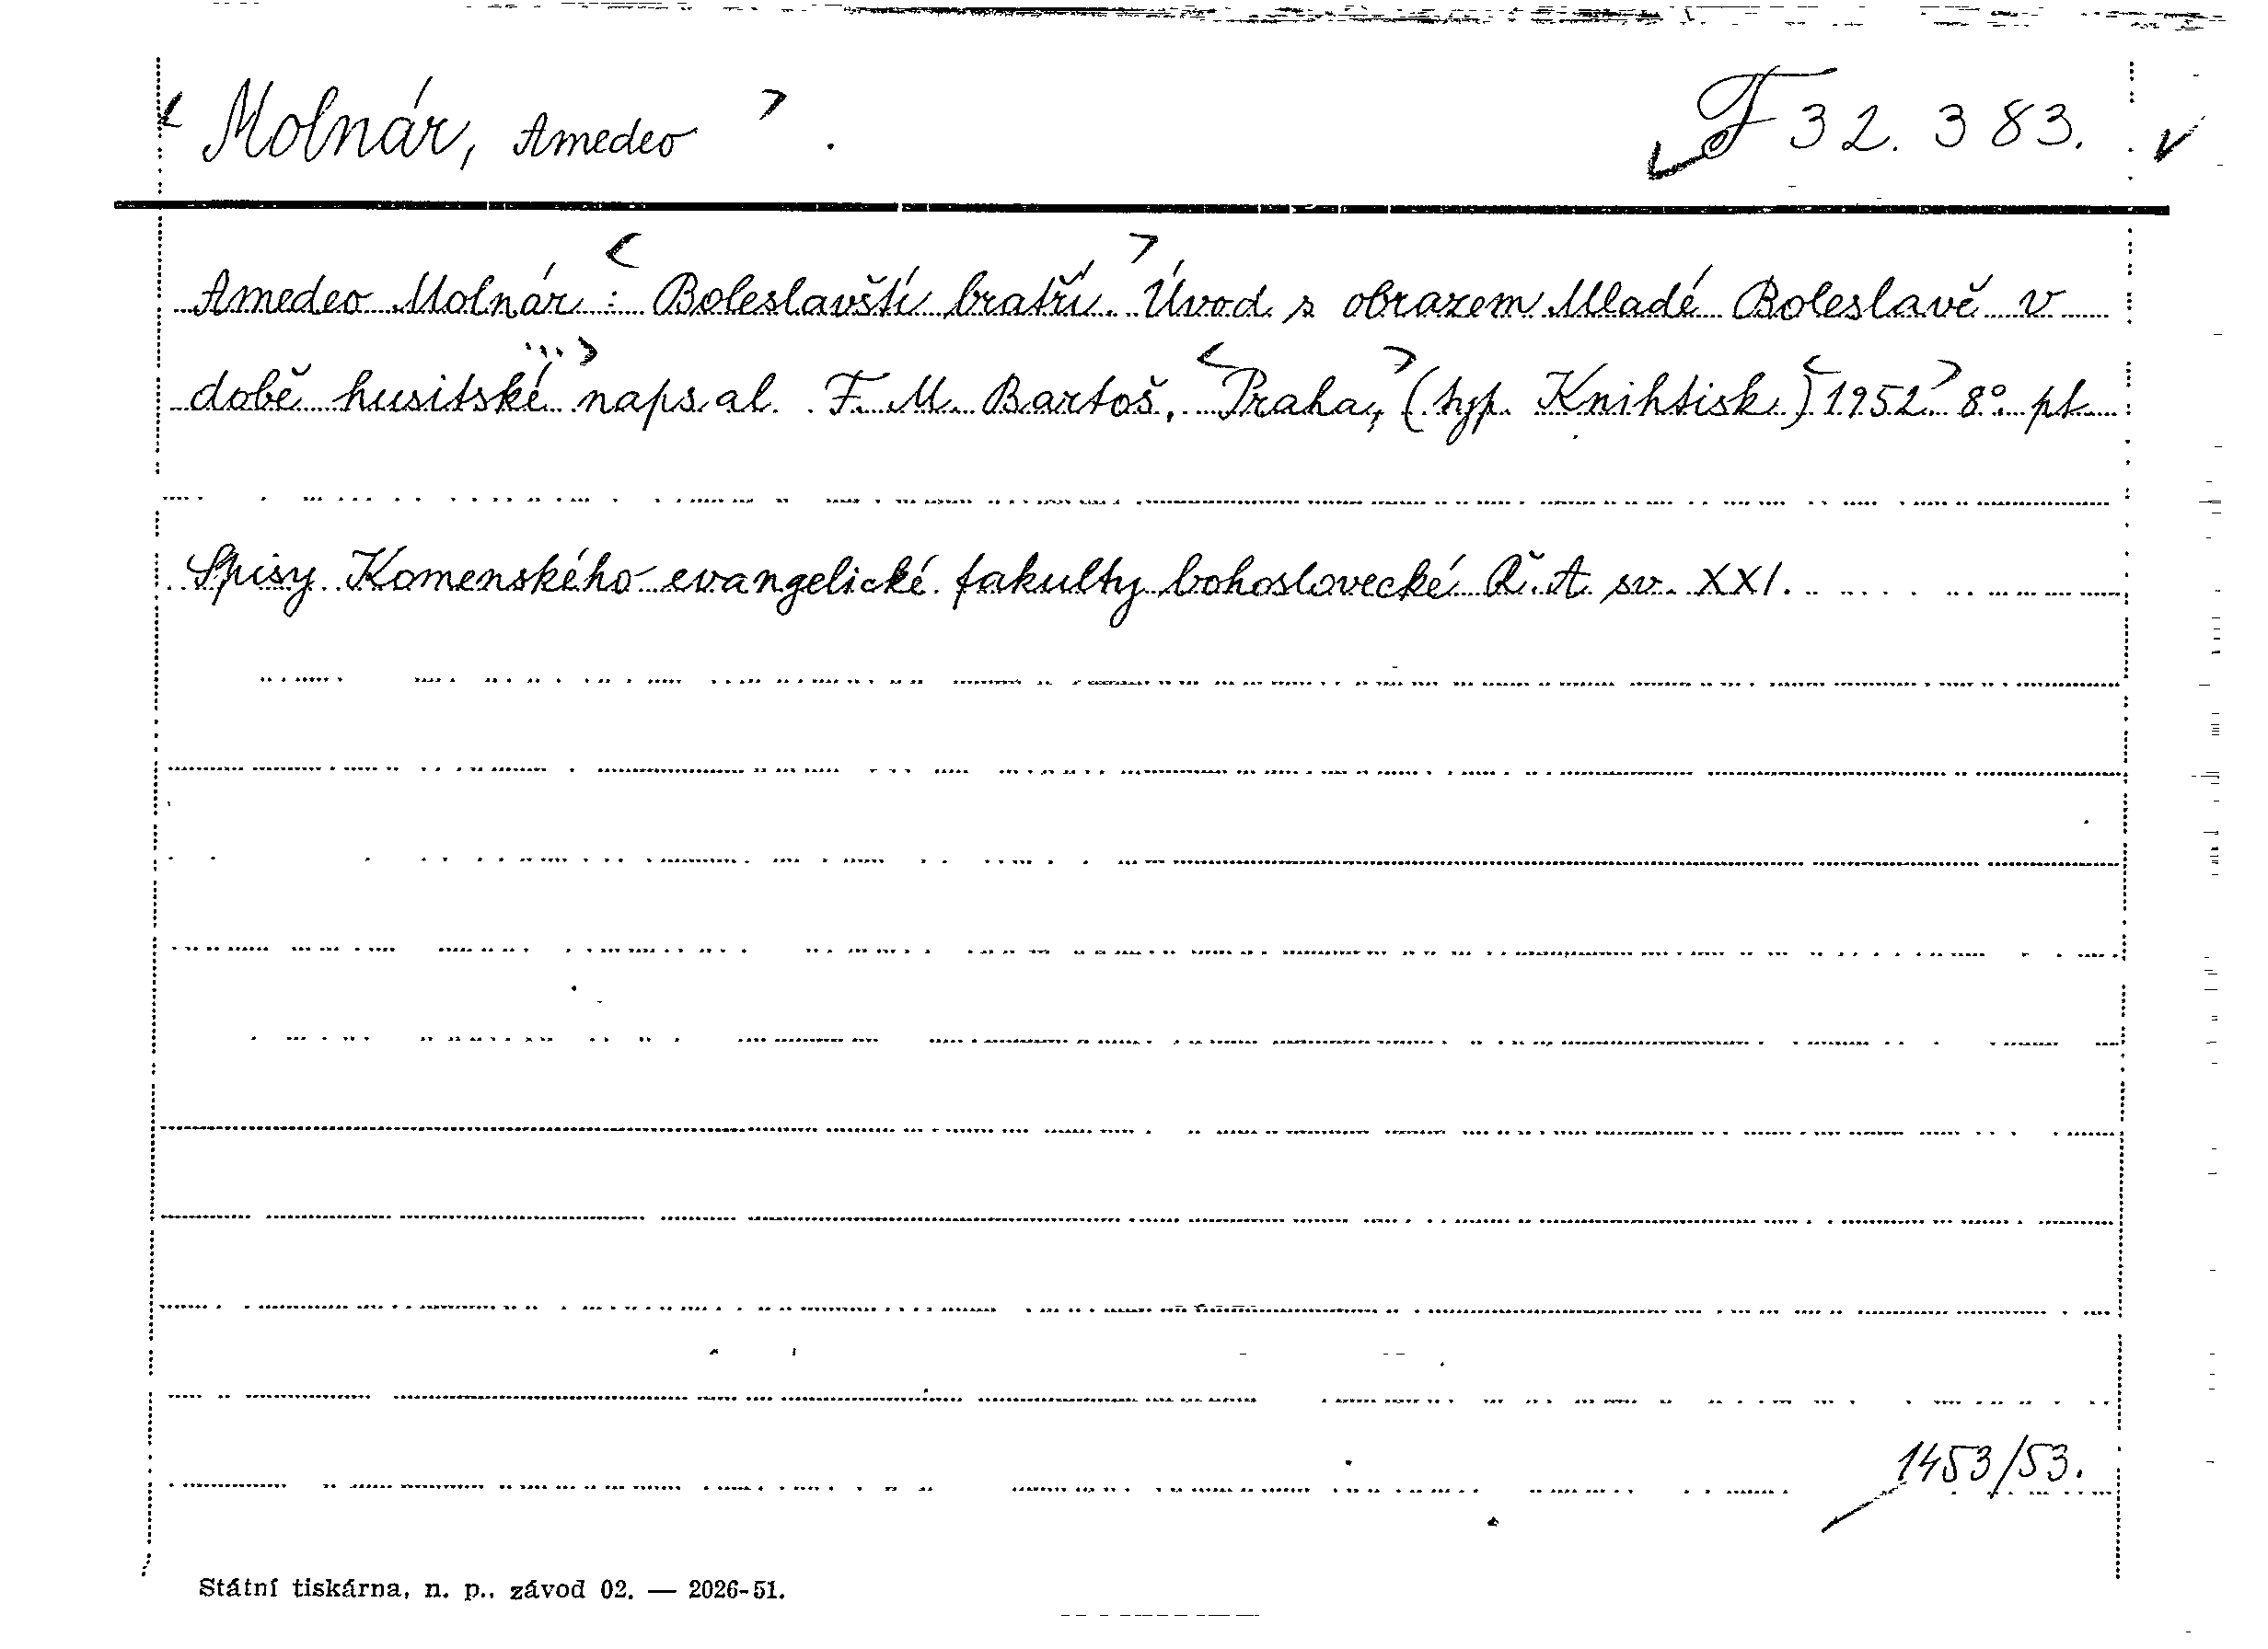 Molnár, Amedeo . F 32.383.
Amedeo Molnár : Boleslavští bratří. Úvod s obrazem Mladé Boleslavě v
době husitské napsal F. M. Bartoš, Praha, (typ. Knihtisk) 1952 8° pt
Spisy Komenského evangelické fakulty bohoslovecké Ř. A sv. XXI.
1453/53.
Státní tiskárna, n. p., závod 02. — 2026-51.